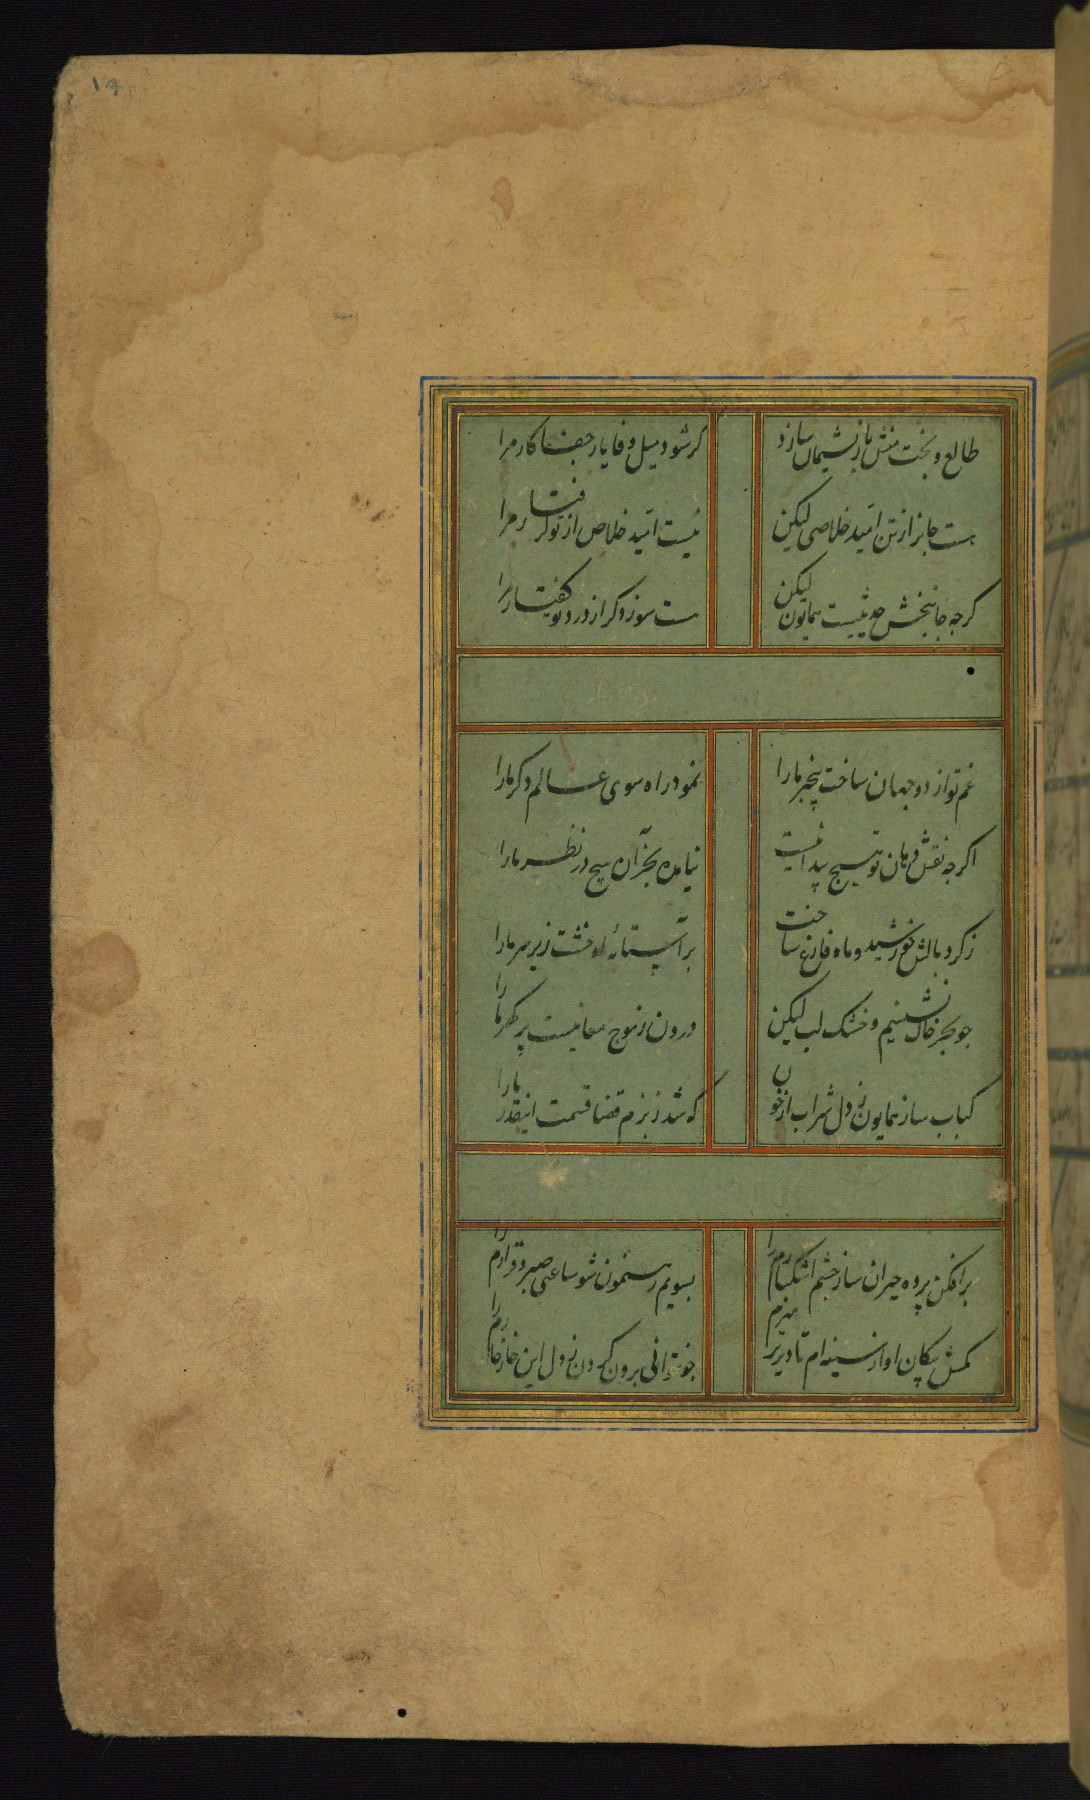 ۱۹
طالع و بخت منش باز پشیمان سازد
کر شود میل وفا یار جفا کار مرا
هست جانرا از تن امید خلاصی لیکن
نیست امید خلاص از تو کرفتار مرا
کرچه جانبخش حدیثیست همایون لیکن
هست سوز دکر از درد تو کفتار مرا
غم تو از دو جهان ساخت بیخبر ما را
نمود راه سوی عالم دکر ما را
اکرچه نقش دهان تو هیچ پیدا نیست
نیامده بجز آن هیچ در نظر ما را
ز کرد بالش خورشید و ماه فارغ ساخت
بر آستانه او خشت زیر سر ما را
چو بحر خاک نشینیم و خشک لب لیکن
درون ز موج معانیست پر کهر ما را
کباب ساز همایون ز دل شراب از خون
که شد ز بزم قضا قسمت اینقدر ما را
برافکن پرده حیران ساز چشم اشکبارم را
بسویم رهنمون شو ساعتی صبر و قرارم را
مکش پیکان او از سینه ام تا دیرتر میرم
چو نتوانی برون کردن ز دل این خار خارم را